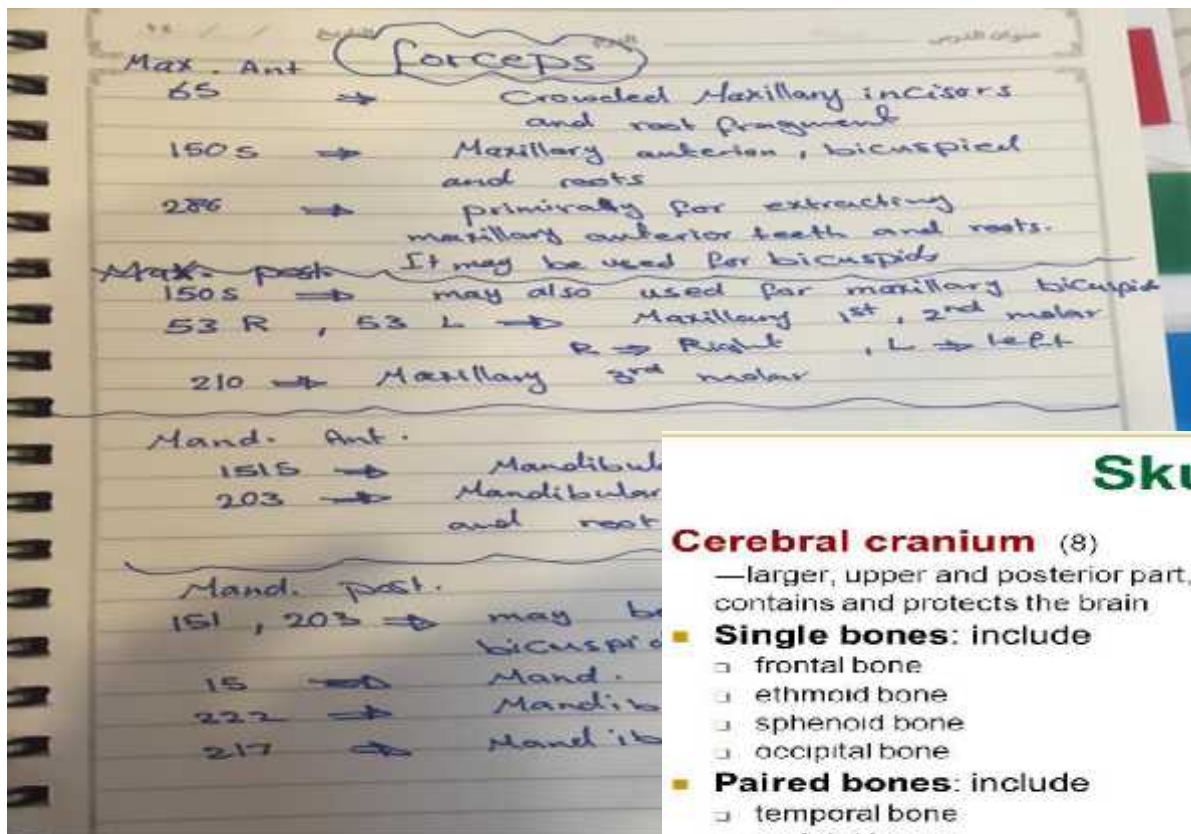 Max. Ant
forceps
65 ⇒ Crowded Maxillary incisors
and root fragment
150s ⇒ Maxillary anterior, bicuspied
and roots
286 ⇒ primirally for extracting
maxillary anterior teeth and roots.
It may be used for bicuspids
Max. post.
150s ⇒ may also used for maxillary bicuspid
53 R , 53 L ⇒ Maxillary 1st, 2nd molar
R ⇒ Right , L ⇒ left
210 ⇒ Maxillary 3rd molar
Mand. Ant.
151S ⇒ Mandibul
203 ⇒ Mandibular
and root
Mand. post.
151 , 203 ⇒ may be
bicuspid
15 ⇒ Mand.
222 ⇒ Mandib
217 ⇒ Mandib
Sku
Cerebral cranium (8)
—larger, upper and posterior part,
contains and protects the brain
Single bones: include
frontal bone
ethmoid bone
sphenoid bone
occipital bone
Paired bones: include
temporal bone